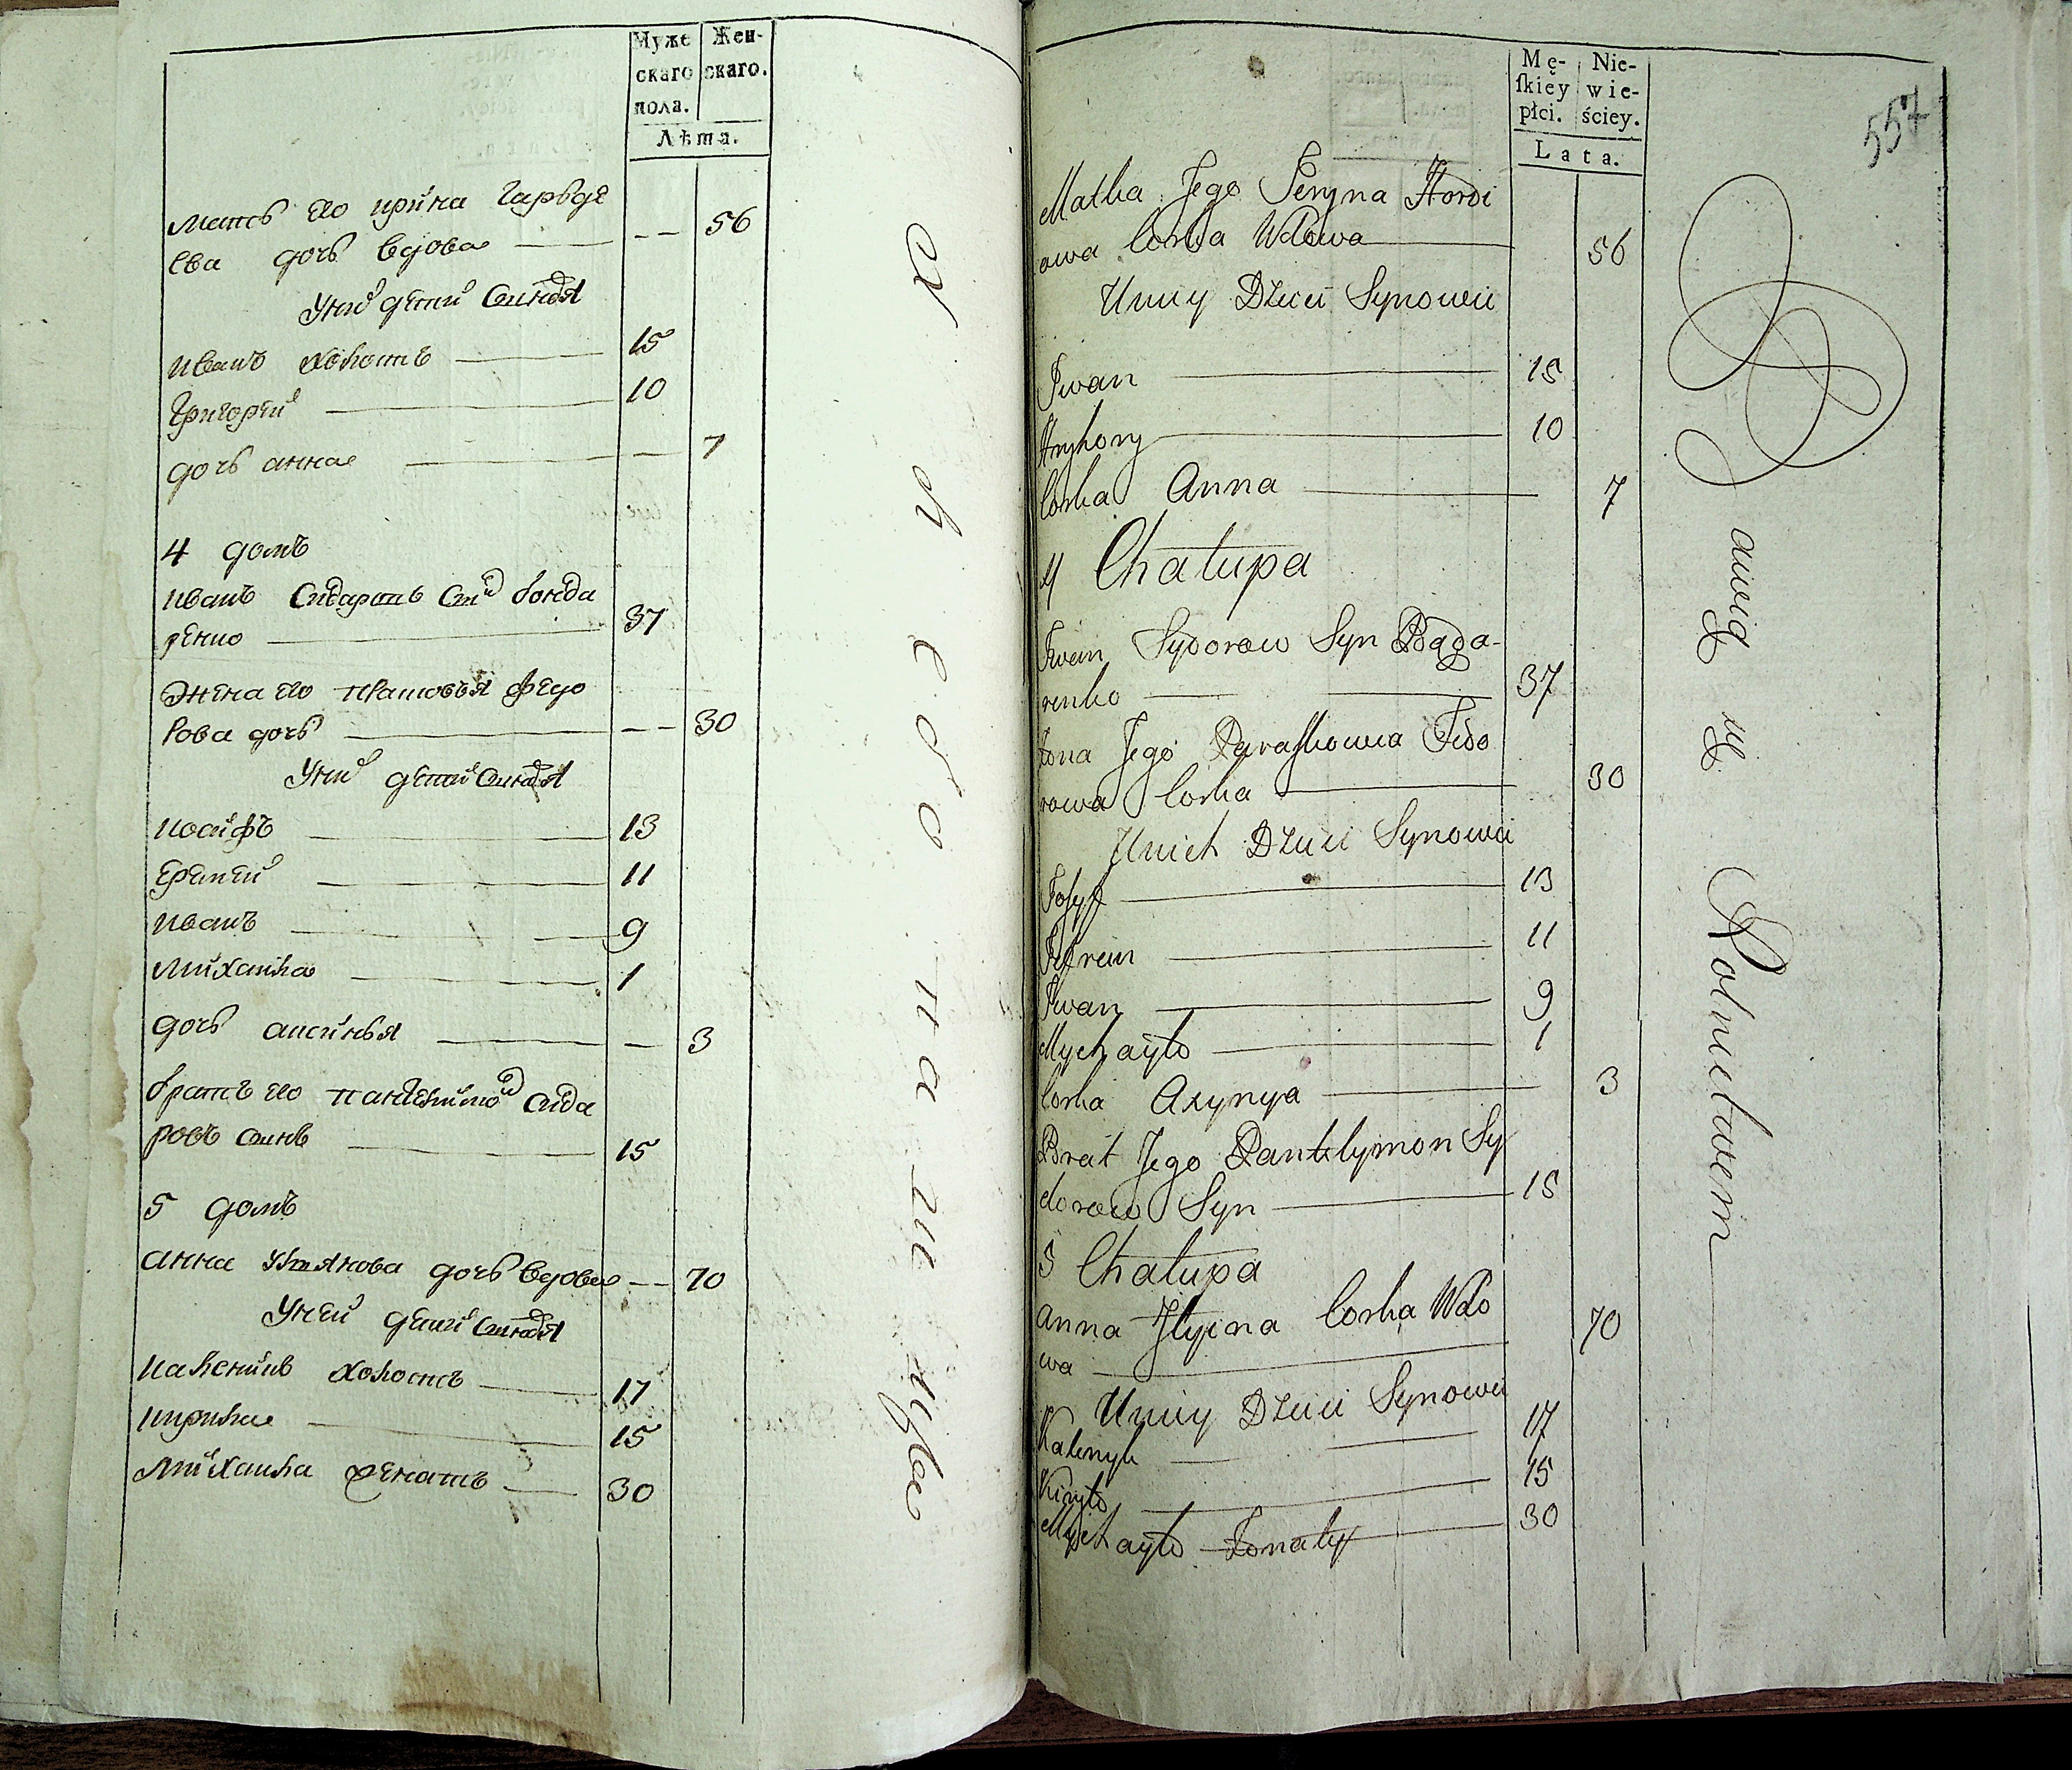 Муже
скаго
пола.
Жен-
скаго.
Лѣта.
мать его ирина Гарѣде
ева дочь вдова — -- 56
У ней детей синовя
иванъ холостъ — 15
Григорей — 10
дочь анна — 7
4 домъ
иванъ Сидаровъ синъ бонда
ренко — 37
жена его парасковья федо
рова дочь — -- 30
У них детей синовя
иосифъ — 13
Ефемей — 11
иванъ — 9
михаила — 1
дочь аксинья — 3
братъ его пантелимон сида
ровъ синъ — 15
5 домъ
анна Ульянова дочь вдова -- 70
У ней детей синовя
каленикъ холостъ — 17
кирила — 15
михаила женатъ — 30
557
Mę-
ſkiey
płci.
Nie-
wie-
ściey.
Lata.
Matka Jego Jeryna Hordi
owa Corka Wdowa — 56
U niey Dzieci Synowei
Iwan — 15
Hryhory — 10
Corka Anna — 7
4 Chałupa
Iwan Sydorow Syn Bąda-
renko — 37
Żona Jego Paraſkowia Fedo
rowa Corka — 30
U nich Dzieci Synowei
Josyf — 13
Jefrem — 11
Iwan — 9
Mychayło — 1
Corka Axynya — 3
Brat Jego Pantelymon Sy
dorow Syn — 15
5 Chałupa
Anna Ilyina Corka Wdo
wa — 70
U niey Dzieci Synowei
Kalenyk — 17
Kiryło — 15
Mychayło Żonaty — 30